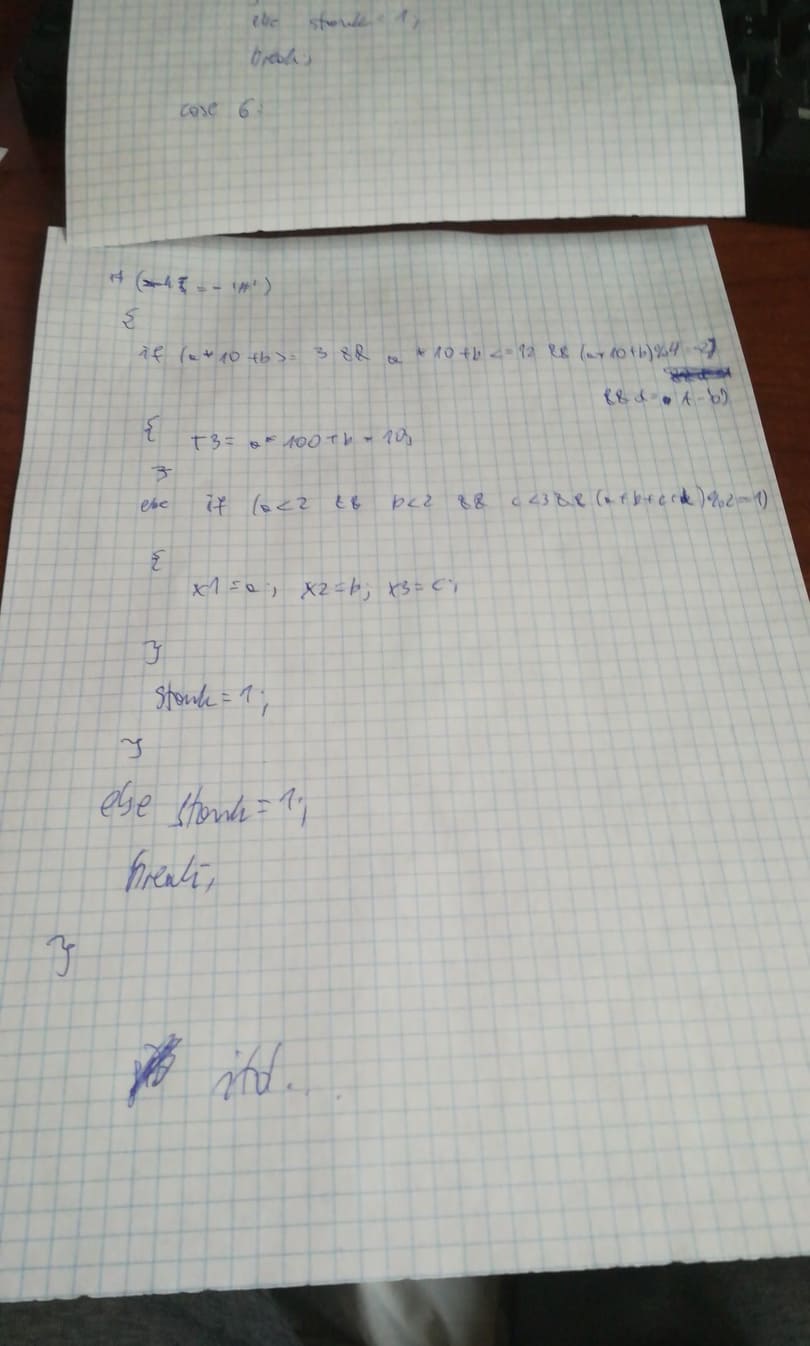 else stonk = 1;
break;
case 6:
if ( == '#')
{
if (a*10+b >= 3 && a*10+b <= 12 && (a*10+b)%4
&& d =
{ T3 = a*100+b*10;
}
else if (a<2 && b<2 && c<3 && (a+b+c+d)%2==1)
{
x1=a; x2=b; x3=c;
}
stonk=1;
}
else stonk=1;
break;
}
itd...